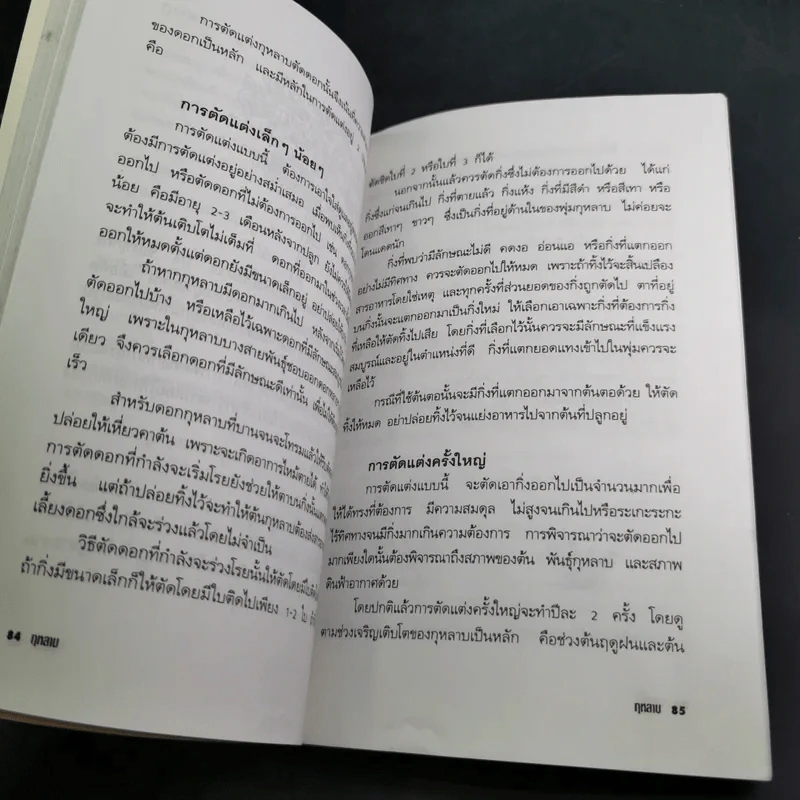 การตัดแต่งกุหลาบตัดดอกนั้นจึงเน้นที่
ของดอกเป็นหลัก และมีหลักในการตัดแต่งอยู่ 2
คือ
การตัดแต่งเล็กๆ น้อยๆ
การตัดแต่งแบบนี้ ต้องเอาใจใส่ดูแล
ต้องมีการตัดแต่งอยู่อย่างสม่ำเสมอ เมื่อพบเห็น
ออกไป หรือตัดดอกที่ไม่ต้องการออกไป เช่น
น้อย คือมีอายุ 2-3 เดือนหลังจากปลูก ยังไม่ควร
จะทำให้ต้นเติบโตไม่เต็มที่ ดอกที่ออกมาในช่วง
ออกให้หมดตั้งแต่ดอกยังมีขนาดเล็กอยู่ อย่าปล่อย
ถ้าหากกุหลาบมีดอกมากเกินไป หลังจาก
ตัดออกไปบ้าง หรือเหลือไว้เฉพาะดอกที่มีลักษณะ
ใหญ่ เพราะในกุหลาบบางสายพันธุ์ชอบออกดอก
เดียว จึงควรเลือกดอกที่มีลักษณะดีเท่านั้น เพื่อไม่ให้
เร็ว
สำหรับดอกกุหลาบที่บานจนจะโทรมแล้วให้
ปล่อยให้เหี่ยวคาต้น เพราะจะเกิดอาการไหม้ตายได้
การตัดดอกที่กำลังจะเริ่มโรยยังช่วยให้ตาบนกิ่งนั้น
ยิ่งขึ้น แต่ถ้าปล่อยทิ้งไว้จะทำให้ต้นกุหลาบต้องส่ง
เลี้ยงดอกซึ่งใกล้จะร่วงแล้วโดยไม่จำเป็น
วิธีตัดดอกที่กำลังจะร่วงโรยนั้นให้ตัดโดยมีใบติด
ถ้ากิ่งมีขนาดเล็กก็ให้ตัดโดยมีใบติดไปเพียง 1-2 ใบ
84 กุหลาบ
ตัดชิดใบที่ 2 หรือใบที่ 3 ก็ได้
นอกจากนั้นแล้วควรตัดกิ่งซึ่งไม่ต้องการออกไปด้วย ได้แก่
กิ่งซึ่งแก่จนเกินไป กิ่งที่ตายแล้ว กิ่งแห้ง กิ่งที่มีสีดำ หรือสีเทา หรือ
ออกสีเทาๆ ขาวๆ ซึ่งเป็นกิ่งที่อยู่ด้านในของพุ่มกุหลาบ ไม่ค่อยจะ
โดนแดดนัก
กิ่งที่พบว่ามีลักษณะไม่ดี คดงอ อ่อนแอ หรือกิ่งที่แตกออก
อย่างไม่มีทิศทาง ควรจะตัดออกไปให้หมด เพราะถ้าทิ้งไว้จะสิ้นเปลือง
สารอาหารโดยใช่เหตุ และทุกครั้งที่ส่วนยอดของกิ่งถูกตัดไป ตาที่อยู่
บนกิ่งนั้นจะแตกออกมาเป็นกิ่งใหม่ ให้เลือกเอาเฉพาะกิ่งที่ต้องการกิ่ง
ที่เหลือให้ตัดทิ้งไปเสีย โดยกิ่งที่เลือกไว้นั้นควรจะมีลักษณะที่แข็งแรง
สมบูรณ์และอยู่ในตำแหน่งที่ดี กิ่งที่แตกยอดแทงเข้าไปในพุ่มควรจะ
เหลือไว้
กรณีที่ใช้ต้นตอนั้นจะมีกิ่งที่แตกออกมาจากต้นตอด้วย ให้ตัด
ทิ้งให้หมด อย่าปล่อยทิ้งไว้จนแย่งอาหารไปจากต้นที่ปลูกอยู่
การตัดแต่งครั้งใหญ่
การตัดแต่งแบบนี้ จะตัดเอากิ่งออกไปเป็นจำนวนมากเพื่อ
ให้ได้ทรงที่ต้องการ มีความสมดุล ไม่สูงจนเกินไปหรือระเกะระกะ
ไร้ทิศทางจนมีกิ่งมากเกินความต้องการ การพิจารณาว่าจะตัดออกไป
มากเพียงใดนั้นต้องพิจารณาถึงสภาพของต้น พันธุ์กุหลาบ และสภาพ
ดินฟ้าอากาศด้วย
โดยปกติแล้วการตัดแต่งครั้งใหญ่จะทำปีละ 2 ครั้ง โดยดู
ตามช่วงเจริญเติบโตของกุหลาบเป็นหลัก คือช่วงต้นฤดูฝนและต้น
กุหลาบ 85